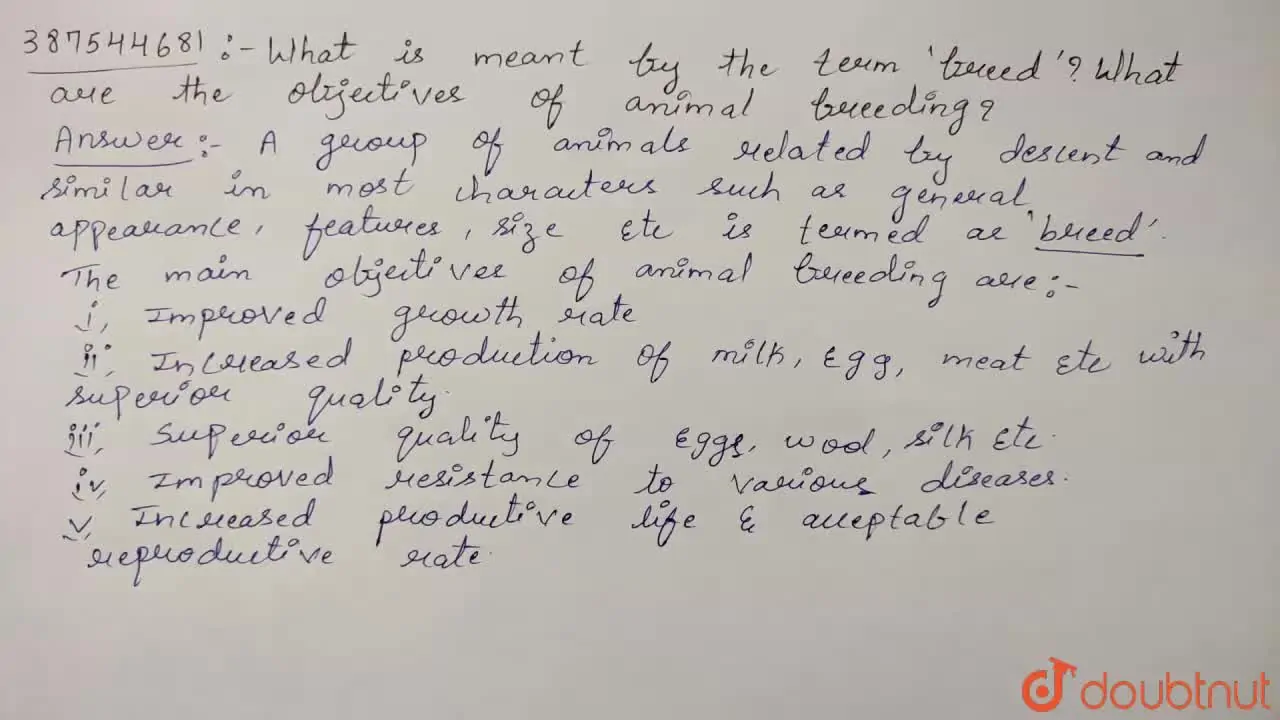 387544681 :- What is meant by the term 'breed'? What
are the objectives of animal breeding?
Answer :- A group of animals related by descent and
similar in most characters such as general
appearance, features, size etc is termed as 'breed'.
The main objectives of animal breeding are :-
i, Improved growth rate
ii, Increased production of milk, Egg, meat etc with
superior quality.
iii, Superior quality of eggs, wood, silk etc.
iv, Improved resistance to various diseases.
v, Increased productive life & acceptable
reproductive rate.
doubtnut